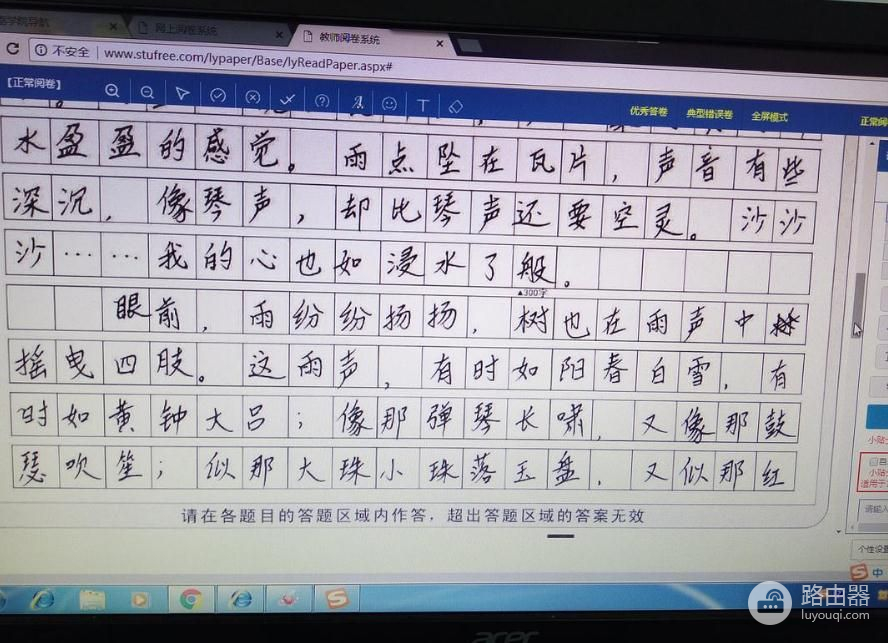 医学院导航
网上阅卷系统
教师阅卷系统
不安全 www.stufree.com/lypaper/Base/lyReadPaper.aspx#
【正常阅卷】
优秀答卷 典型错误卷 全屏模式
正常阅
水盈盈的感觉。雨点坠在瓦片，声音有些
深沉，像琴声，却比琴声还要空灵。沙沙
沙……我的心也如浸水了般。
▲300字
眼前，雨纷纷扬扬，树也在雨声中
摇曳四肢。这雨声，有时如阳春白雪，有
时如黄钟大吕；像那弹琴长啸，又像那鼓
瑟吹笙；似那大珠小珠落玉盘，又似那红
请在各题目的答题区域内作答，超出答题区域的答案无效
小贴
小贴
适用于
请输入
个性设置
中
acer
路由器
luyouqi.com